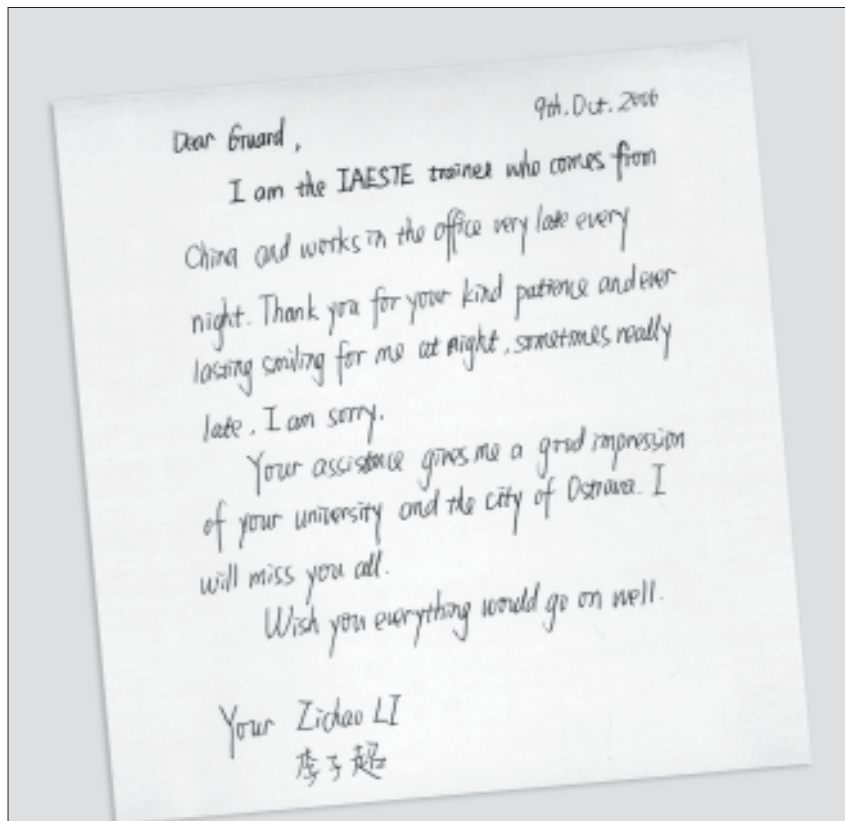 9th. Oct. 2006
Dear Guard,
I am the IAESTE trainee who comes from
China and works in the office very late every
night. Thank you for your kind patience and ever
lasting smiling for me at night, sometimes really
late. I am sorry.
Your assistance gives me a good impression
of your university and the city of Ostrava. I
will miss you all.
Wish you everything would go on well.
Your Zichao LI
李子超